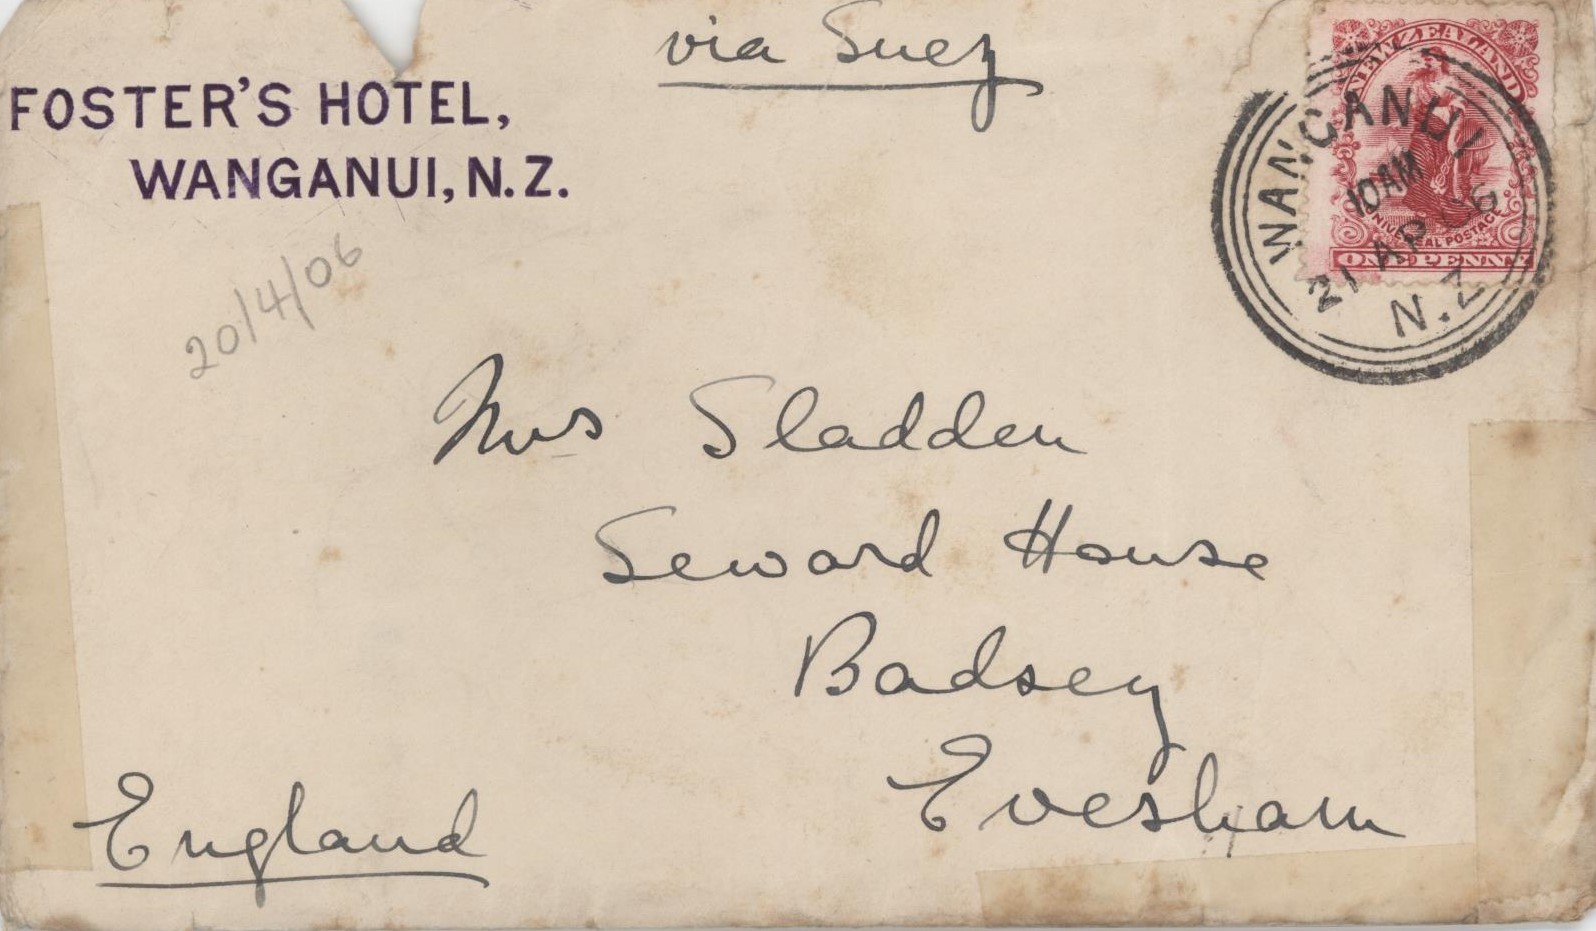 via Suez
FOSTER'S HOTEL,
WANGANUI, N.Z.
20/4/06
NEW ZEALAND
UNIVERSAL POSTAGE
ONE PENNY
WANGANUI
10 AM
21 AP 06
N.Z
Mrs Sladden
Seward House
Badsey
Evesham
England